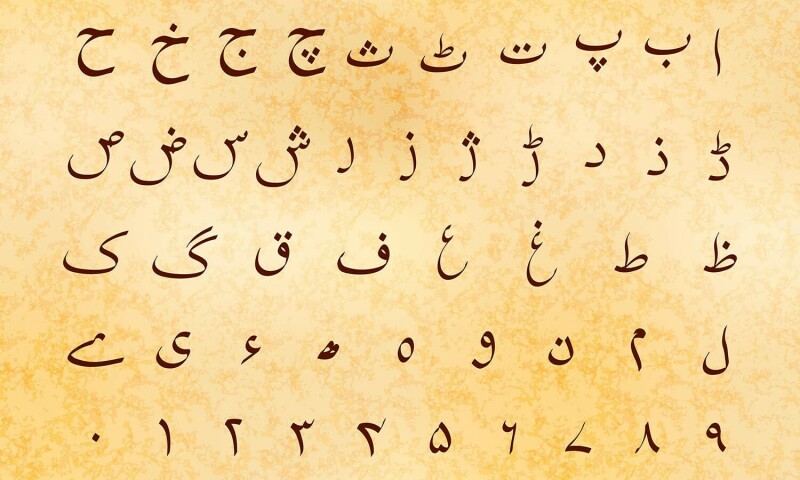 ا ب پ ت ٹ ث چ ج خ ح
ڈ ذ د ڑ ژ ز ر ش س ض ص
ظ ط غ ع ف ق گ ک
ل م ن و ہ ھ ء ی ے
۰ ۱ ۲ ۳ ۴ ۵ ۶ ۷ ۸ ۹